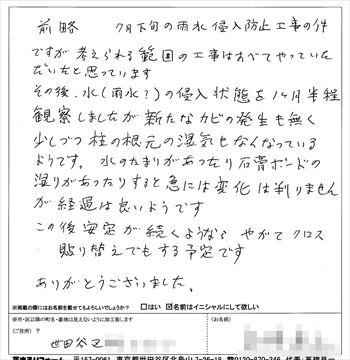 前略　7月下旬の雨水侵入防止工事の件
ですが考えられる範囲の工事はすべてやっていた
だいたと思っています
その後、水(雨水?)の侵入状態を1ヶ月半経
観察しましたが新たなカビの発生も無く
少しづつ柱の根元の湿気もなくなっている
ようです。水のたまりがあったり石膏ボードの
湿りがあったりすると急には変化は判りません
が経過は良いようです
この後安定が続くようなら やがてクロス
貼り替えでもする予定です
ありがとうございました。
※掲載の際にはお名前を載せてもよろしいでしょうか? □はい ☑名前はイニシャルにして欲しい
※市・区以降の町名・番地は見えないように加工致します
(ご住所)
(お名前)
世田谷区